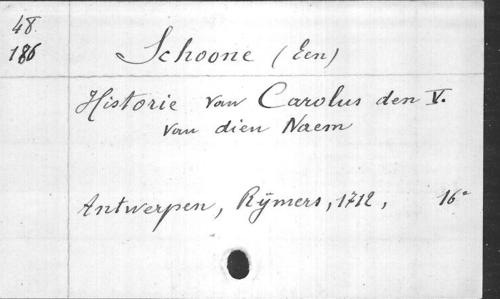 48.
186
Schoone (Een)
Historie van Carolus den V.
van dien Naem
Antwerpen, Rÿmers, 1712, 16°